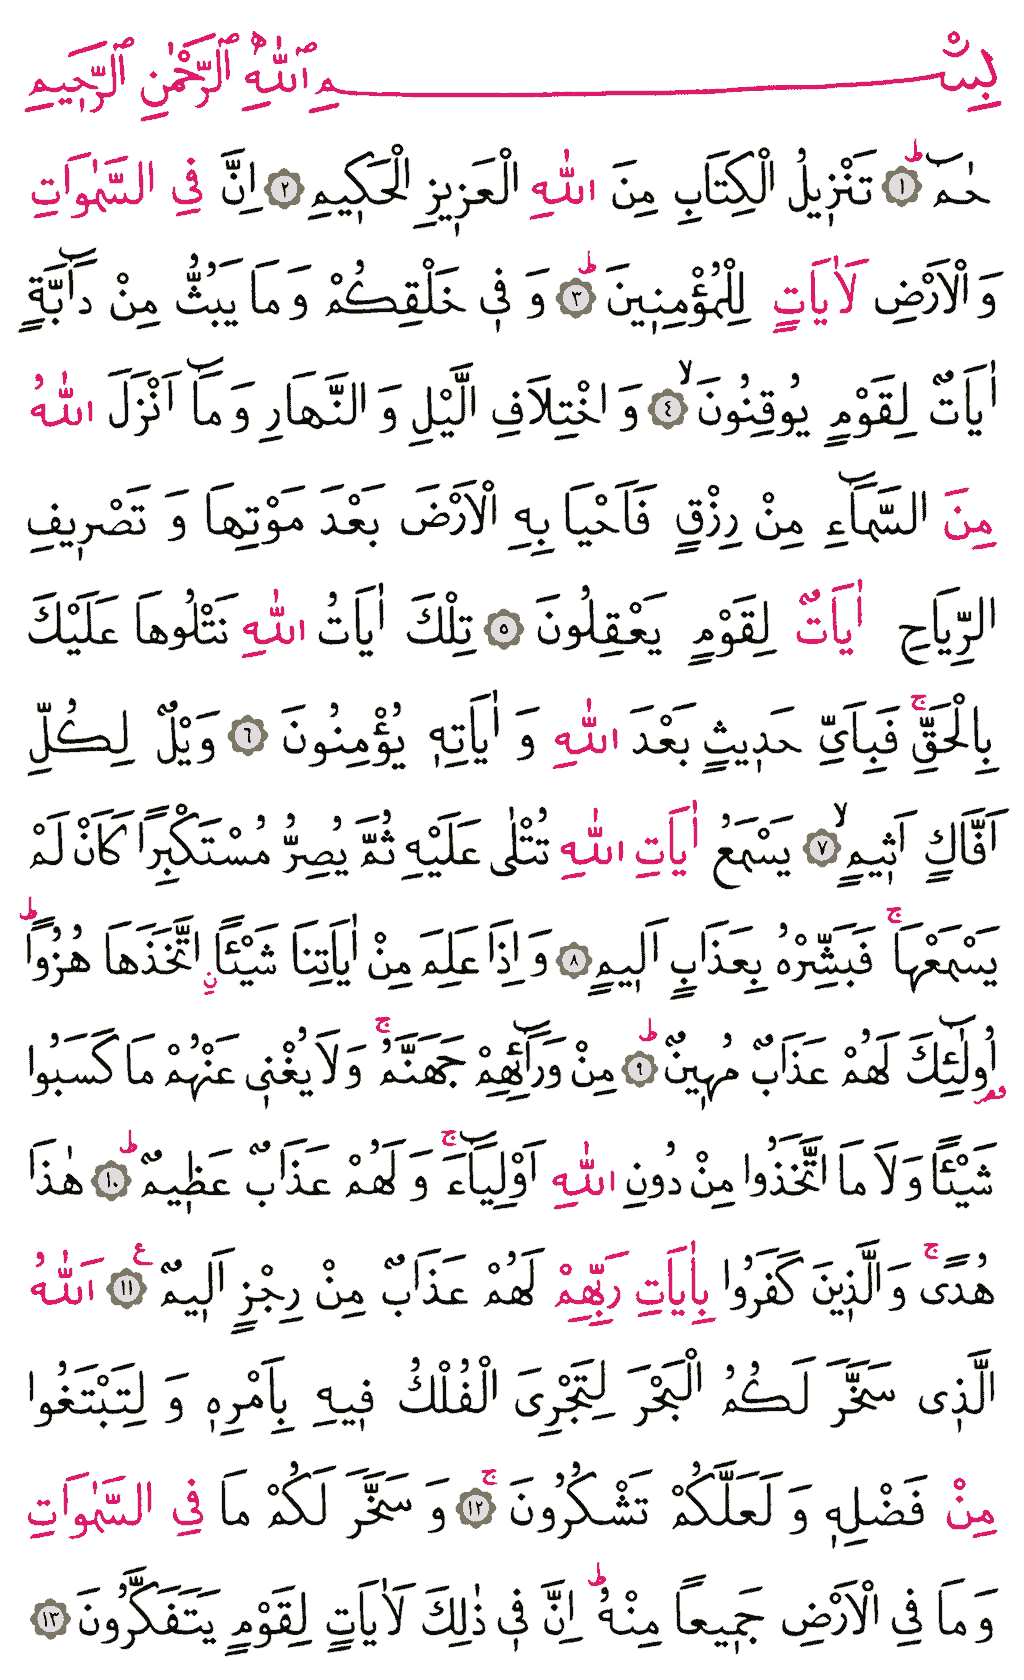 بِسْمِ ٱللّٰهِ ٱلرَّحْمٰنِ ٱلرَّحٖيمِ
حٰمٓ ۚ ﴿١﴾ تَنْزٖيلُ الْكِتَابِ مِنَ اللّٰهِ الْعَزٖيزِ الْحَكٖيمِ ﴿٢﴾ اِنَّ فِي السَّمٰوَاتِ
وَالْاَرْضِ لَاٰيَاتٍ لِلْمُؤْمِنٖينَ ؕ ﴿٣﴾ وَ فٖي خَلْقِكُمْ وَ مَا يَبُثُّ مِنْ دَٓابَّةٍ
اٰيَاتٌ لِقَوْمٍ يُوقِنُونَ ۙ ﴿٤﴾ وَ اخْتِلَافِ الَّيْلِ وَ النَّهَارِ وَ مَٓا اَنْزَلَ اللّٰهُ
مِنَ السَّمَٓاءِ مِنْ رِزْقٍ فَاَحْيَا بِهِ الْاَرْضَ بَعْدَ مَوْتِهَا وَ تَصْرٖيفِ
الرِّيَاحِ اٰيَاتٌ لِقَوْمٍ يَعْقِلُونَ ﴿٥﴾ تِلْكَ اٰيَاتُ اللّٰهِ نَتْلُوهَا عَلَيْكَ
بِالْحَقِّۚ فَبِاَيِّ حَدٖيثٍ بَعْدَ اللّٰهِ وَ اٰيَاتِهٖ يُؤْمِنُونَ ﴿٦﴾ وَيْلٌ لِكُلِّ
اَفَّاكٍ اَثٖيمٍ ۙ ﴿٧﴾ يَسْمَعُ اٰيَاتِ اللّٰهِ تُتْلٰى عَلَيْهِ ثُمَّ يُصِرُّ مُسْتَكْبِرًا كَاَنْ لَمْ
يَسْمَعْهَاۚ فَبَشِّرْهُ بِعَذَابٍ اَلٖيمٍ ﴿٨﴾ وَ اِذَا عَلِمَ مِنْ اٰيَاتِنَا شَيْـًٔا ن اتَّخَذَهَا هُزُوًاؕ
اُولٰٓئِكَ لَهُمْ عَذَابٌ مُهٖينٌ ؕ ﴿٩﴾ مِنْ وَرَٓائِهِمْ جَهَنَّمُۚ وَلَا يُغْنٖي عَنْهُمْ مَا كَسَبُوا
شَيْـًٔا وَلَا مَا اتَّخَذُوا مِنْ دُونِ اللّٰهِ اَوْلِيَٓاءَۚ وَ لَهُمْ عَذَابٌ عَظٖيمٌ ؕ ﴿١٠﴾ هٰذَا
هُدًىۚ وَالَّذٖينَ كَفَرُوا بِاٰيَاتِ رَبِّهِمْ لَهُمْ عَذَابٌ مِنْ رِجْزٍ اَلٖيمٌ ع ﴿١١﴾ اَللّٰهُ
الَّذٖى سَخَّرَ لَكُمُ الْبَحْرَ لِتَجْرِىَ الْفُلْكُ فٖيهِ بِاَمْرِهٖ وَ لِتَبْتَغُوا
مِنْ فَضْلِهٖ وَ لَعَلَّكُمْ تَشْكُرُونَ ۚ ﴿١٢﴾ وَ سَخَّرَ لَكُمْ مَا فِي السَّمٰوَاتِ
وَ مَا فِي الْاَرْضِ جَمٖيعًا مِنْهُؕ اِنَّ فٖي ذٰلِكَ لَاٰيَاتٍ لِقَوْمٍ يَتَفَكَّرُونَ ﴿١٣﴾